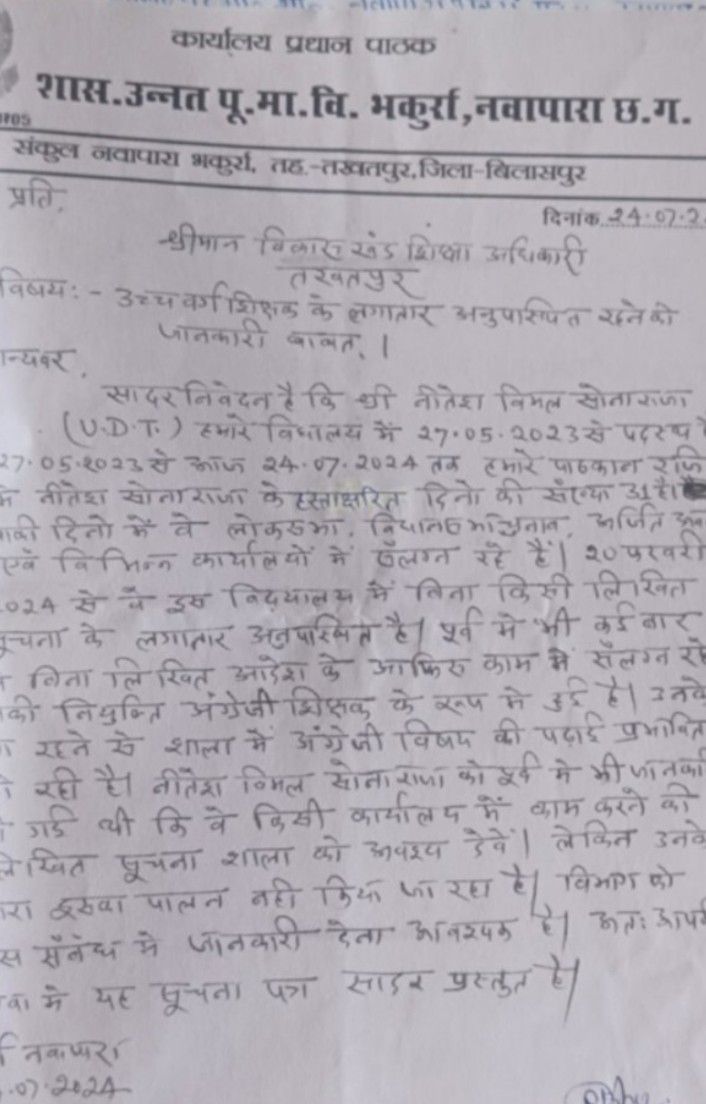 कार्यालय प्रधान पाठक
शास.उन्नत पू.मा.वि. भकुर्रा,नवापारा छ.ग.
संकुल नवापारा भकुर्रा, तह.-तखतपुर,जिला-बिलासपुर
प्रति,
दिनांक 24.07.2
श्रीमान विकास खंड शिक्षा अधिकारी
तखतपुर
विषय:- उच्च वर्ग शिक्षक के लगातार अनुपस्थित रहने की
जानकारी बाबत्।
न्यवर,
सादर निवेदन है कि श्री नीतेश विमल सोनाराजा
(U.D.T.) हमारे विद्यालय में 27.05.2023 से पदस्थ
27.05.2023 से आज 24.07.2024 तक हमारे पाठकान
नीतेश सोनाराजा के हस्ताक्षरित दिनो की संख्या 31 है।
दिनो में वे लोकसभा, विधानसभा चुनाव, अर्जित
एवं विभिन्न कार्यालयों में संलग्न रहे हैं। 20 फरवरी
024 से वे इस विद्यालय में बिना किसी लिखित
चना के लगातार अनुपस्थित है। पूर्व मे भी कई बार
बिना लिखित आदेश के आफिस काम में संलग्न रहे
की नियुक्ति अंग्रेजी शिक्षक के रूप मे हुई है। उनके
रहने से शाला में अंग्रेजी विषय की पढाई प्रभावित
रही है। नीतेश विमल सोनाराजा को पूर्व मे भी जानका
गई थी कि वे किसी कार्यालय में काम करने की
लिखित सूचना शाला को अवश्य देवें। लेकिन उनके
रा इसका पालन नही किया जा रहा है। विभाग को
स संबंध मे जानकारी देना आवश्यक है। अतः आपक
वा मे यह सूचना पत्र सादर प्रस्तुत है।
नवापारा
.07.2024